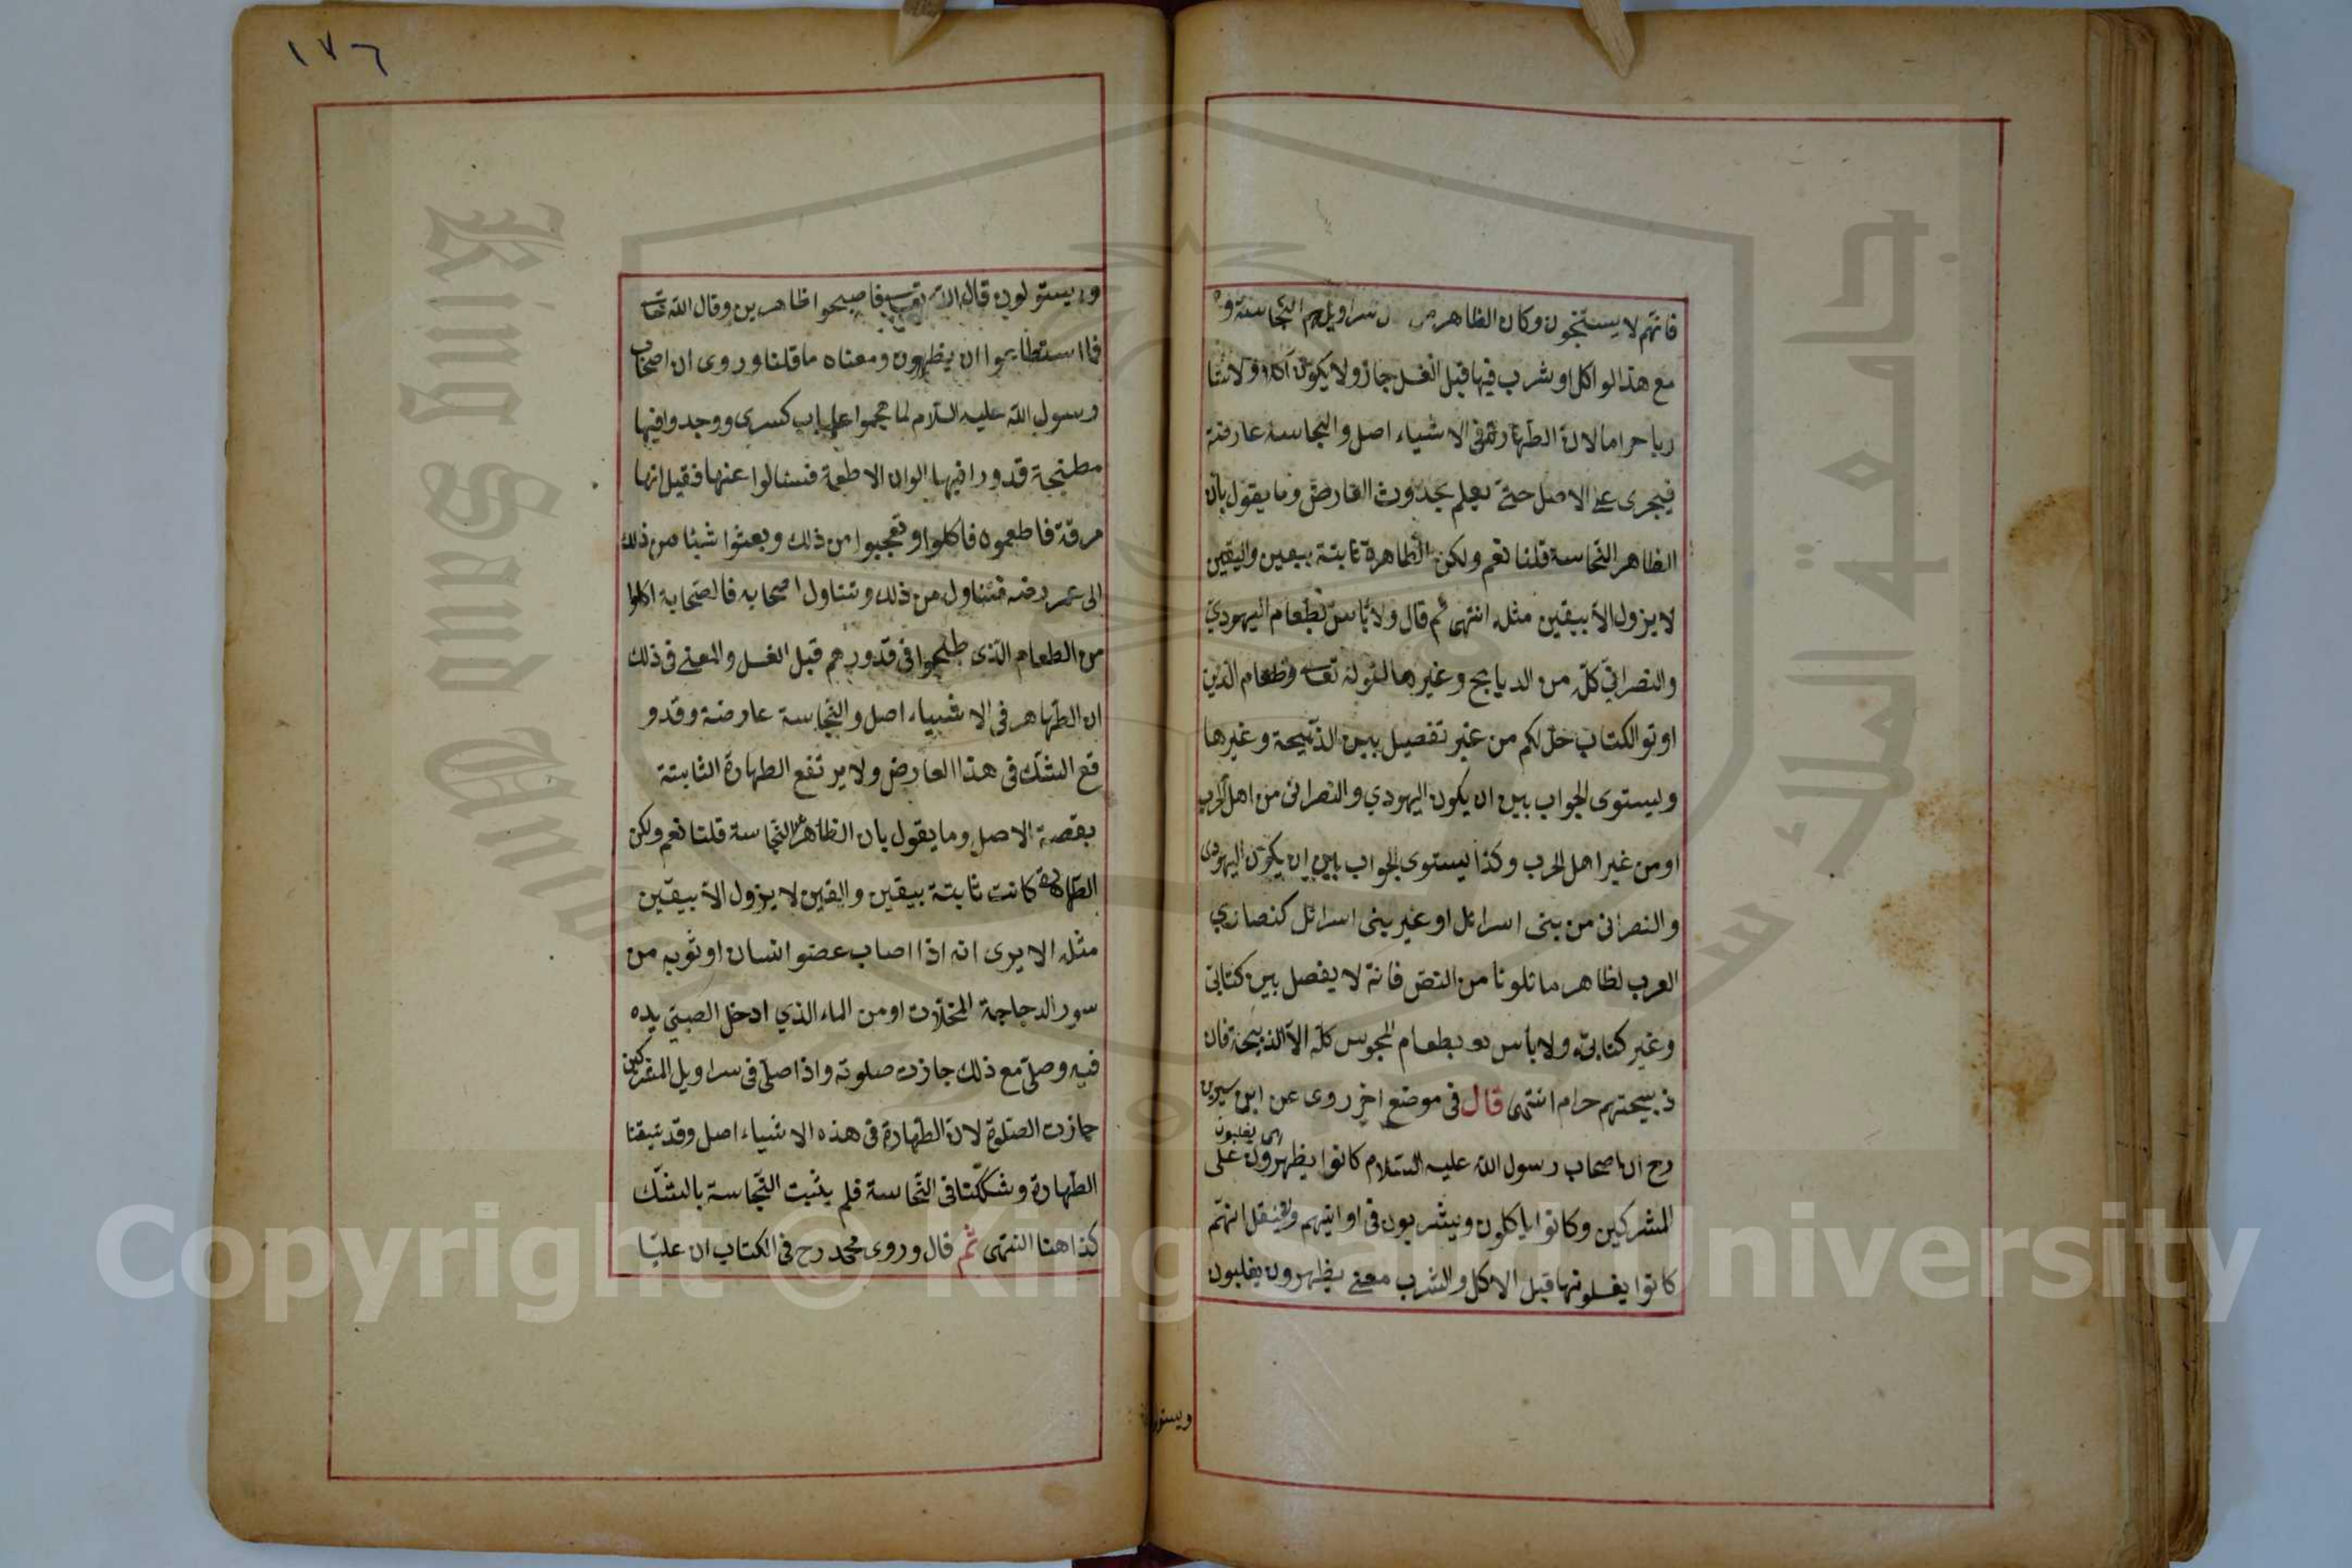 فانهم لا يستنجون وكان الظاهر من سراويلهم النجاسة و
مع هذا لو اكل او شرب فيها قبل الغسل جاز ولا يكون آكلا ولا شا
ربا حراما لان الطهارة في الاشياء اصل والنجاسة عارضة
فيجرى على الاصل حتى يعلم بحدوث العارض وما يقول بان
الظاهر النجاسة قلنا نعم ولكن الطاهرة ثابتة بيقين واليقين
لا يزول الا بيقين مثله انتهى ثم قال ولا بأس بطعام اليهودي
والنصراني كله من الذبايح وغيرها لقوله تعالى وطعام الذين
اوتوا الكتاب حل لكم من غير تفصيل بين الذبيحة وغيرها
ويستوى الجواب بين ان يكون اليهودي والنصرانى من اهل الحرب
او من غير اهل الحرب وكذا يستوى الجواب بين ان يكون اليهودى
والنصرانى من بنى اسرائل او غير بنى اسرائل كنصارى
العرب لظاهر ما تلونا من النص فانه لا يفصل بين كتابى
وغير كتابى ولا بأس بطعام المجوس كله الا الذبيحة فان
ذبيحتهم حرام انتهى قال فى موضع اخر روى عن ابن سيرين
اى يغلبون
رح ان اصحاب رسول الله عليه السلام كانوا يظهرون على
المشركين وكانوا ياكلون ويشربون فى اوانيهم ولم ينقل انهم
كانوا يغسلونها قبل الاكل والشرب معنى يظهرون يغلبون
ويستولون
١٧٦
ويستولون قال الله تعالى فاصبحوا ظاهرين وقال الله تعالى
فما استطاعوا ان يظهروه ومعناه ما قلنا وروى ان اصحاب
رسول الله عليه السلام لما هجموا على باب كسرى ووجدوا فيها
مطبخة قدورا فيها الوان الاطعمة فسئالوا عنها فقيل انها
مرقة فاطعموه فاكلوا وتعجبوا من ذلك وبعثوا شيئا من ذلك
الى عمر رضه فتناول من ذلك وتناول اصحابه فالصحابة اكلوا
من الطعام الذى طبخوا فى قدورهم قبل الغسل والمعنى فى ذلك
ان الطهاهر فى الاشياء اصل والنجاسة عارضة وقد و
قع الشك فى هذا العارض ولا يرتفع الطهارة الثابتة
بقصة الاصل وما يقول بان الظاهر النجاسة قلنا نعم ولكن
الطهارة كانت ثابتة بيقين واليقين لا يزول الا بيقين
مثله الا يرى انه اذا اصاب عضو انسان او ثوبه من
سور الدجاجة المخلات او من الماء الذي ادخل الصبى يده
فيه وصلى مع ذلك جازت صلوته واذا صلى فى سراويل المشركين
جازت الصلوة لان الطهارة فى هذه الاشياء اصل وقد تيقنا
الطهارة وشككنا فى النجاسة فلم يثبت النجاسة بالشك
كذا هنا انتهى ثم قال وروى محمد رح فى الكتاب ان عليا
Copyright © King Saud University
King Saud University
جامعة الملك سعود